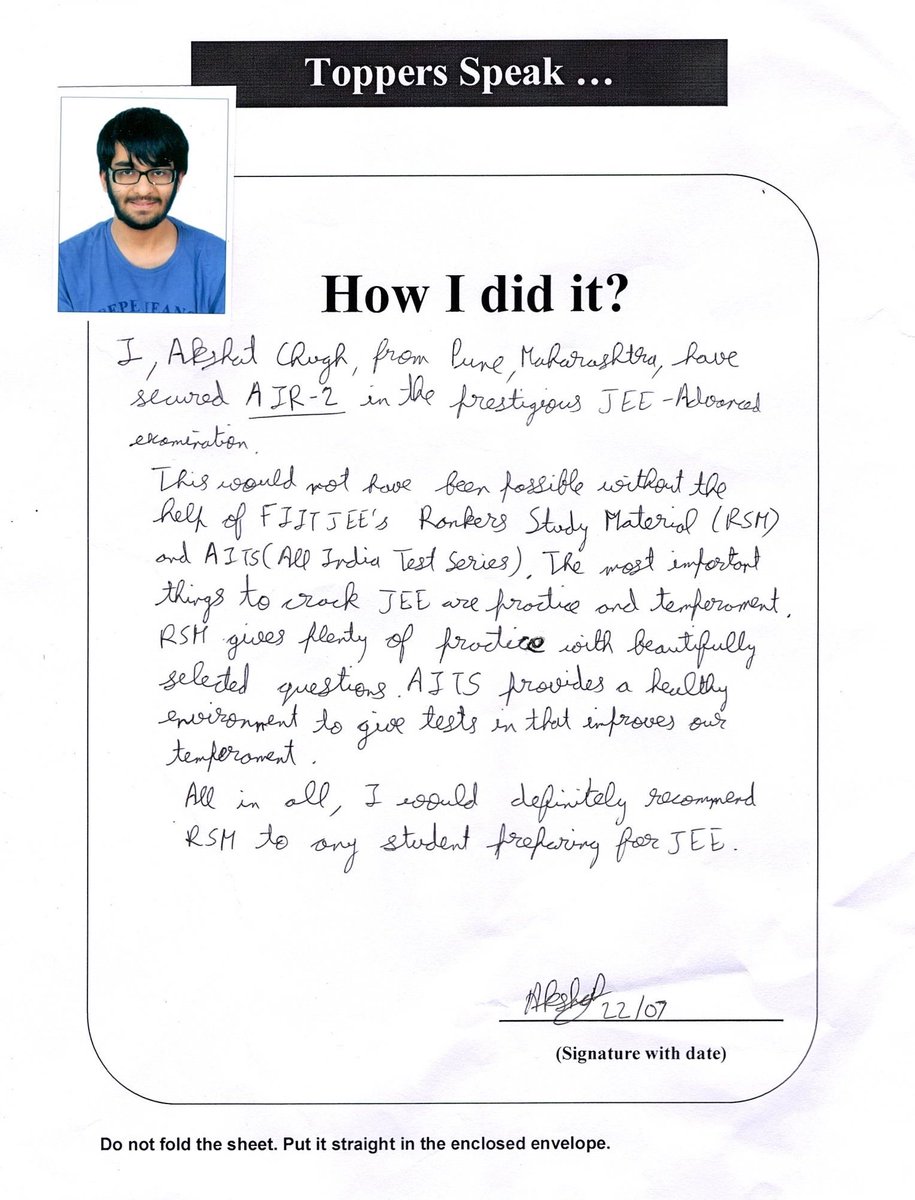 Toppers Speak ...
PEPE JEANS
How I did it?
I, Akshat Chugh, from Pune, Maharashtra, have
secured AIR-2 in the prestigious JEE-Advanced
examination.
This would not have been possible without the
help of FIITJEE's Rankers Study Material (RSM)
and AITS (All India Test Series). The most important
things to crack JEE are practice and temperament.
RSM gives plenty of practice with beautifully
selected questions. AITS provides a healthy
environment to give tests in that improves our
temperament.
All in all, I would definitely recommend
RSM to any student preparing for JEE.
Akshat 22/07
(Signature with date)
Do not fold the sheet. Put it straight in the enclosed envelope.